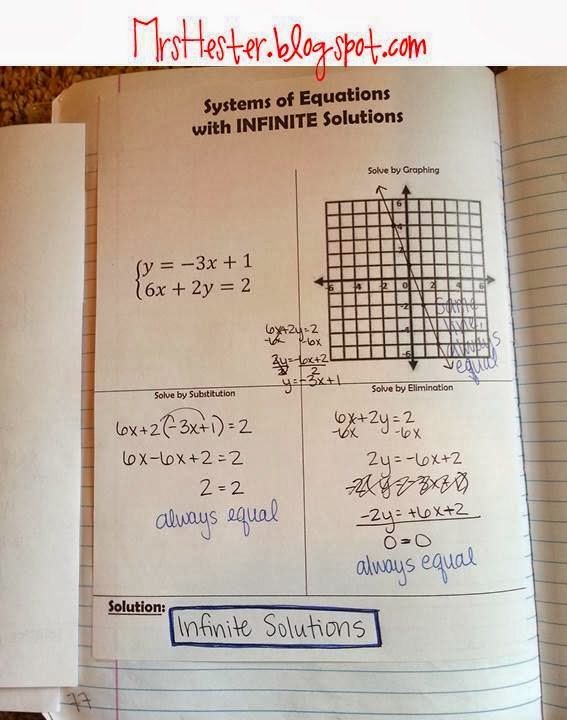 MrsHester.blogspot.com
Systems of Equations
with INFINITE Solutions
Solve by Graphing
{y = −3x + 1
{6x + 2y = 2
6 4 2
-6 -4 -2 0 2 4 6
-2 -4 -6
same
line,
always
equal
6x+2y=2
-6x -6x
2y=-6x+2
2 2
y=-3x+1
Solve by Substitution
6x+2(-3x+1)=2
6x-6x+2=2
2=2
always equal
Solve by Elimination
6x+2y=2
-6x -6x
2y=-6x+2
-2y=+6x+2
0=0
always equal
Solution:
Infinite Solutions
77